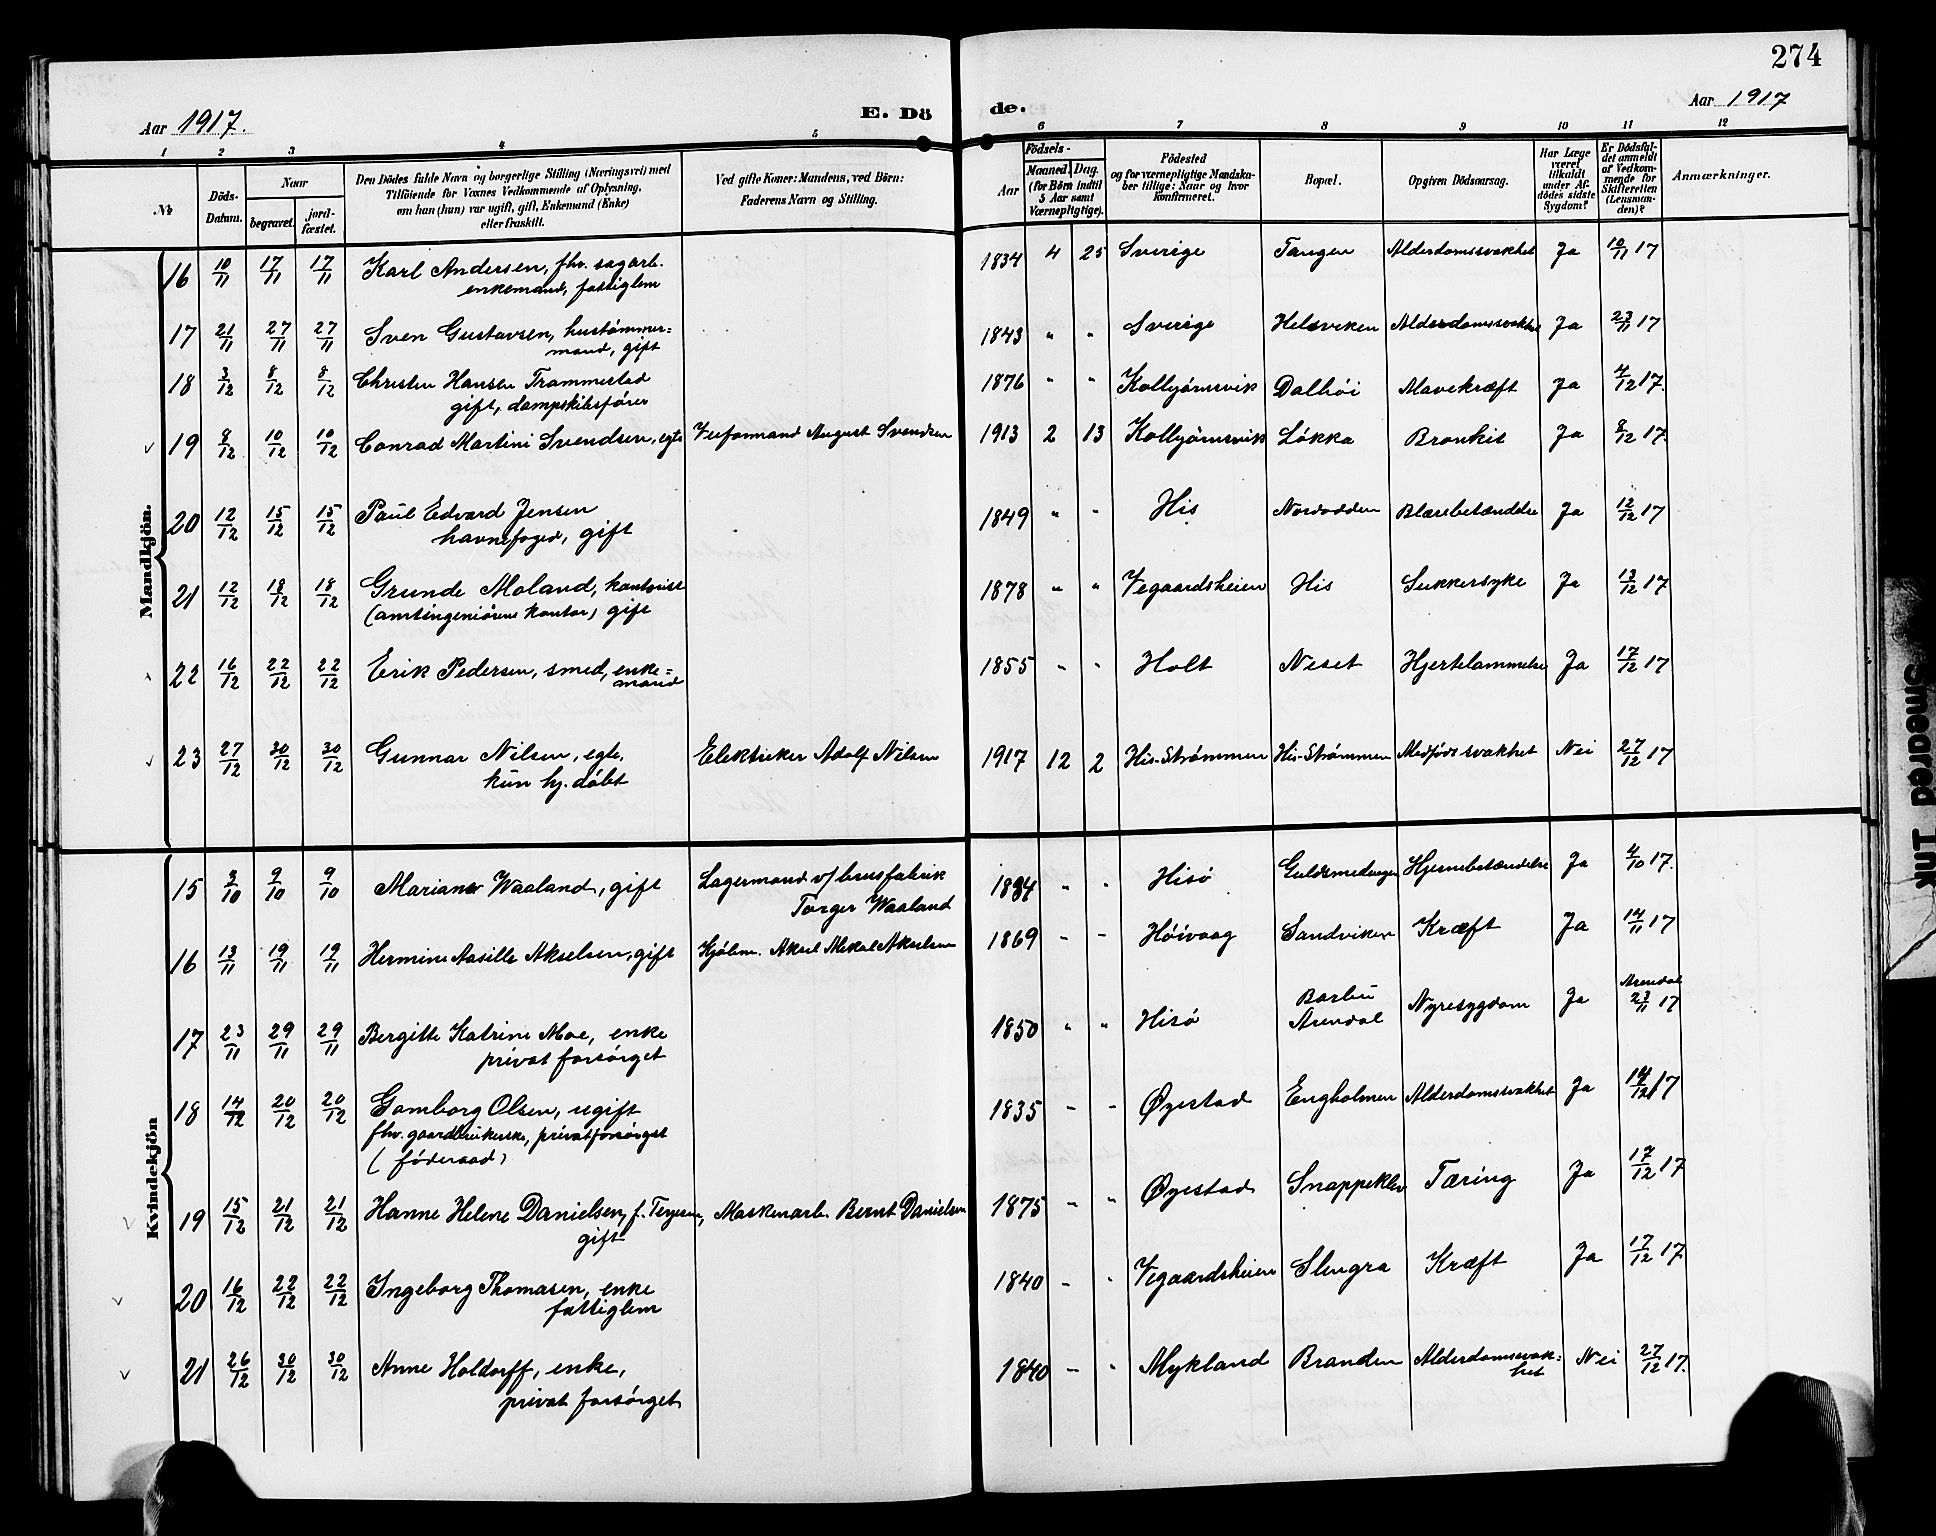 274
Aar 1917.
E. Dö
de.
Aar 1917
1 2 3 4 5 6 7 8 9 10 11 12
№
Döds-
Datum.
Naar
begravet.
jord-
fæstet.
Den Dödes fulde Navn og borgerlige Stilling (Næringsvei) med
Tilföiende for Voxnes Vedkommende af Oplysning,
om han (hun) var ugift, gift, Enkemand (Enke)
eller fraskilt.
Ved gifte Koner: Mandens, ved Börn:
Faderens Navn og Stilling.
Födsels-
Aar
Maaned, Dag.
(for Börn indtil
5 Aar samt
Værnepligtige).
Födested
og for værnepligtige Mandska-
ber tillige: Naar og hvor
konfirmeret.
Bopæl.
Opgiven Dödsaarsag.
Har Læge
været
tilkaldt
under Af-
dödes sidste
Sygdom?
Er Dödsfal-
det anmeldt
af Vedkom-
mende for
Skifteretten
(Lensman-
den)?
Anmærkninger.
Mandkjön.
16 10/11 17/11 17/11 Karl Andersen, fhv. sagarb. 1834 4 25 Sverige Tangen Alderdomssvakhet Ja 10/11 17
enkemand, fattiglem
17 21/11 27/11 27/11 Sven Gustavsen, hustømmer= 1843 " " Sverige Helsviken Alderdomssvakhet Ja 23/11 17
mand, gift
18 3/12 8/12 8/12 Christen Hansen Trommestad 1876 " " Kolbjørnsvik Dalhöi Mavekræft Ja 4/12 17.
gift, dampskibsfører
19 8/12 10/12 10/12 Conrad Martini Svendsen, egte Veiformand August Svendsen 1913 2 13 Kolbjørnsvik Løkka Bronkit Ja 8/12 17.
20 12/12 15/12 15/12 Paul Edvard Jensen 1849 " " His Nordodden Blærebetændelse Ja 12/12 17
havnefoged, gift
21 12/12 18/12 18/12 Grunde Moland, kontorist 1878 " " Vegaardsheien His Sukkersyke Ja 13/12 17
(amtsingeniörens kontor) gift
22 16/12 22/12 22/12 Erik Pedersen, smed, enke= 1855 " " Holt Neset Hjertelammelse Ja 17/12 17
mand
23 27/12 30/12 30/12 Gunnar Nilsen, egte, Elektriker Adolf Nilsen 1917 12 2 His-Strømmen His-Strømmen Medfödt svakhet Nei 27/12 17
kun hj. døbt
Kvindekjön
15 3/10 9/10 9/10 Mariane Waaland, gift Lagermand v/ brusfabrik 1894 " " Hisø Guldsmedengen Hjernebetændelse Ja 4/10 17.
Torger Waaland
16 13/11 19/11 19/11 Hermine Aasille Akselsen, gift Kjølem. Aksel Mikal Akselsen 1869 - - Höivaag Sandviken Kræft Ja 14/11 17
17 23/11 29/11 29/11 Bergitte Katrine Moe, enke 1850 " " Hisø Barbu Arendal Nyresygdom Ja Arendal 23/11 17
privat forsørget
18 14/12 20/12 20/12 Gomborg Olsen, ugift 1835 - - Øyestad Engholmen Alderdomssvakhet Ja 14/12 17
fhv. gaardbrukerske, privatforsørget
(föderaad)
19 15/12 21/12 21/12 Hanne Helene Danielsen, f. Terjesen, Maskinarb. Bernt Danielsen 1875 - " Øyestad Snappeklev Tæring Ja 17/12 17
gift
20 16/12 22/12 22/12 Ingeborg Thomasen, enke 1840 - " Vegaardsheien Slengra Kræft Ja 17/12 17
fattiglem
21 26/12 30/12 30/12 Anne Holdorff, enke, 1840 - " Mykland Branden Alderdomssvak= Nei 27/12 17.
het
privat forsørget
Smeared Ink